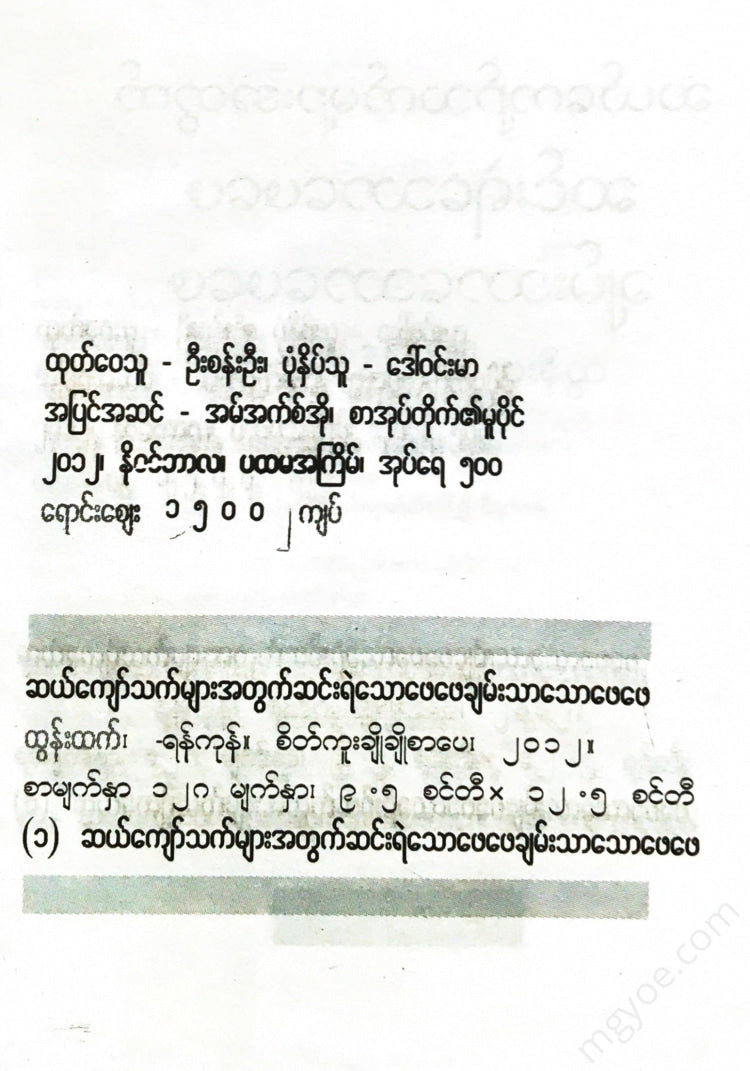 ထုတ်ဝေသူ - ဦးစန်းဦး၊ ပုံနှိပ်သူ - ဒေါ်ဝင်းမာ
အပြင်အဆင် - အမ်အက်စ်အို၊ စာအုပ်တိုက်၏မူပိုင်
၂၀၁၂၊ နိုဝင်ဘာလ၊ ပထမအကြိမ်၊ အုပ်ရေ ၅၀၀
ရောင်းဈေး ၁၅၀၀ ၂ ကျပ်
ဆယ်ကျော်သက်များအတွက်ဆင်းရဲသောဖေဖေချမ်းသာသောဖေဖေ
ထွန်းထက်၊ -ရန်ကုန်။ စိတ်ကူးချိုချိုစာပေ၊ ၂၀၁၂။
စာမျက်နှာ ၁၂၈ မျက်နှာ၊ ၉.၅ စင်တီ× ၁၂.၅ စင်တီ
(၁) ဆယ်ကျော်သက်များအတွက်ဆင်းရဲသောဖေဖေချမ်းသာသောဖေဖေ
mgyoe.com